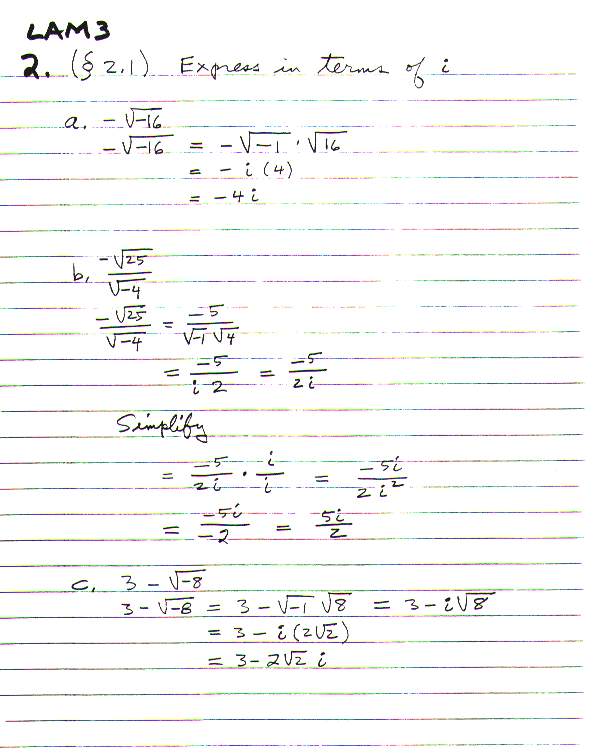 LAM3
2. (§ 2.1) Express in terms of i
a. -√-16
-√-16 = -√-1 · √16
= - i (4)
= -4i
b. -√25/√-4
-√25/√-4 = -5/√-1 √4
= -5/i 2 = -5/2i
Simplify
= -5/2i · i/i = -5i/2i²
= -5i/-2 = 5i/2
c. 3 - √-8
3 - √-8 = 3 - √-1 √8 = 3 - i√8
= 3 - i (2√2)
= 3 - 2√2 i